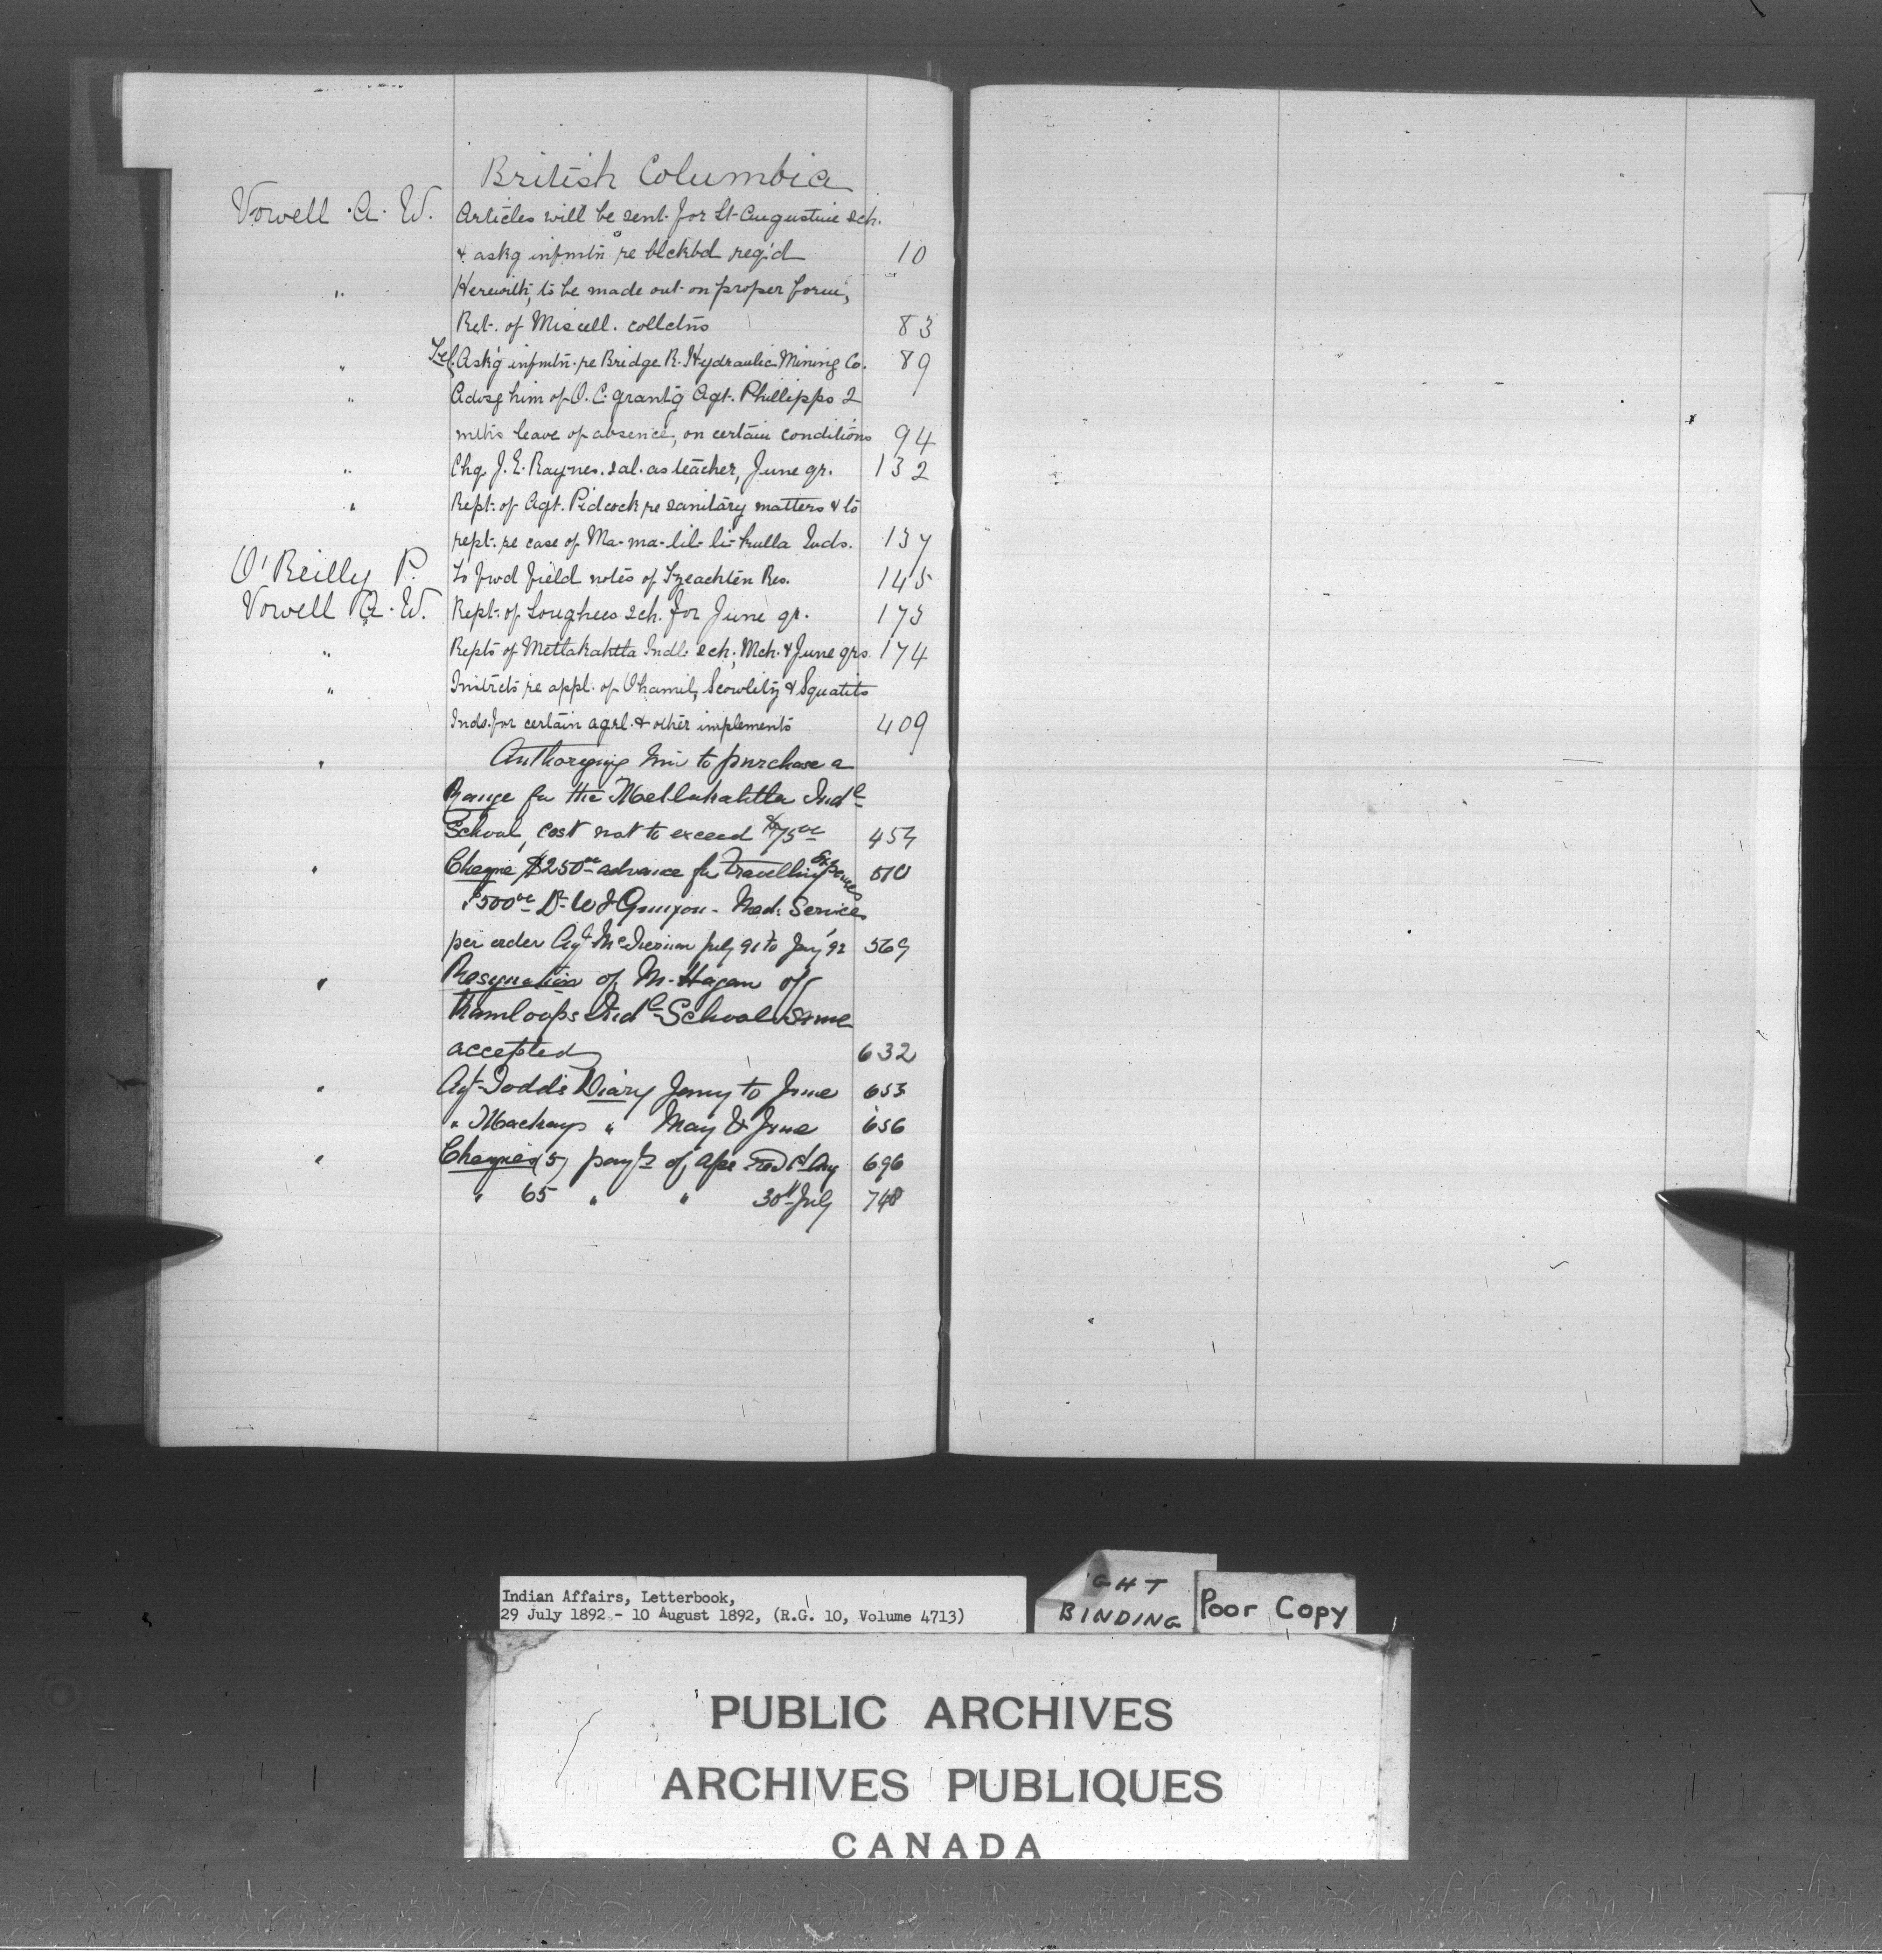 British Columbia
Vowell A. W. Articles will be sent for St. Augustine sch.
& askg infmtn re blckbd req'd 10
" Herewith, to be made out on proper form,
Ret. of Miscell. collctns 83
" Tel. Ask'g infmtn. re Bridge R. Hydraulic Mining Co. 89
" Advsg him of O.C. grant'g Agt. Phillipps 2
mths leave of absence, on certain conditions 94
" Chq. J. E. Raynes. sal. as teacher, June qr. 132
" Rept. of Agt. Pidcock re sanitary matters & to
rept. re case of Ma-ma-lil-li-kulla Inds. 137
O'Reilly P. To fwd field notes of Tzeachten Res. 145
Vowell A. W. Rept. of Songhees sch. for June qr. 173
" Repts of Metlakahtla Indl. sch, Mch. & June qrs. 174
" Instrcts re appl. of Ohamil, Scowlitz & Squatits
Inds. for certain agrl. & other implements 409
" Authorizing him to purchase a
Range for the Metlakahtla Indl
School, cost not to exceed $75 00 457
" Cheque $250 00 advance for travelling Expenses 510
$500 00 Dr. W J Med. Services
per order Agt July 91 to Jany 92 569
" Resignation of M. Hagan of
Kamloops Indl School same
accepted 632
" Agt Todd's Diary Jany to June 653
" Mackays " May & June 656
" Cheques (5) payt of a/cs 696
" 65 " " 30th July 748
Indian Affairs, Letterbook,
29 July 1892 - 10 August 1892, (R.G. 10, Volume 4713)
GHT
BINDING
Poor Copy
PUBLIC ARCHIVES
ARCHIVES PUBLIQUES
CANADA